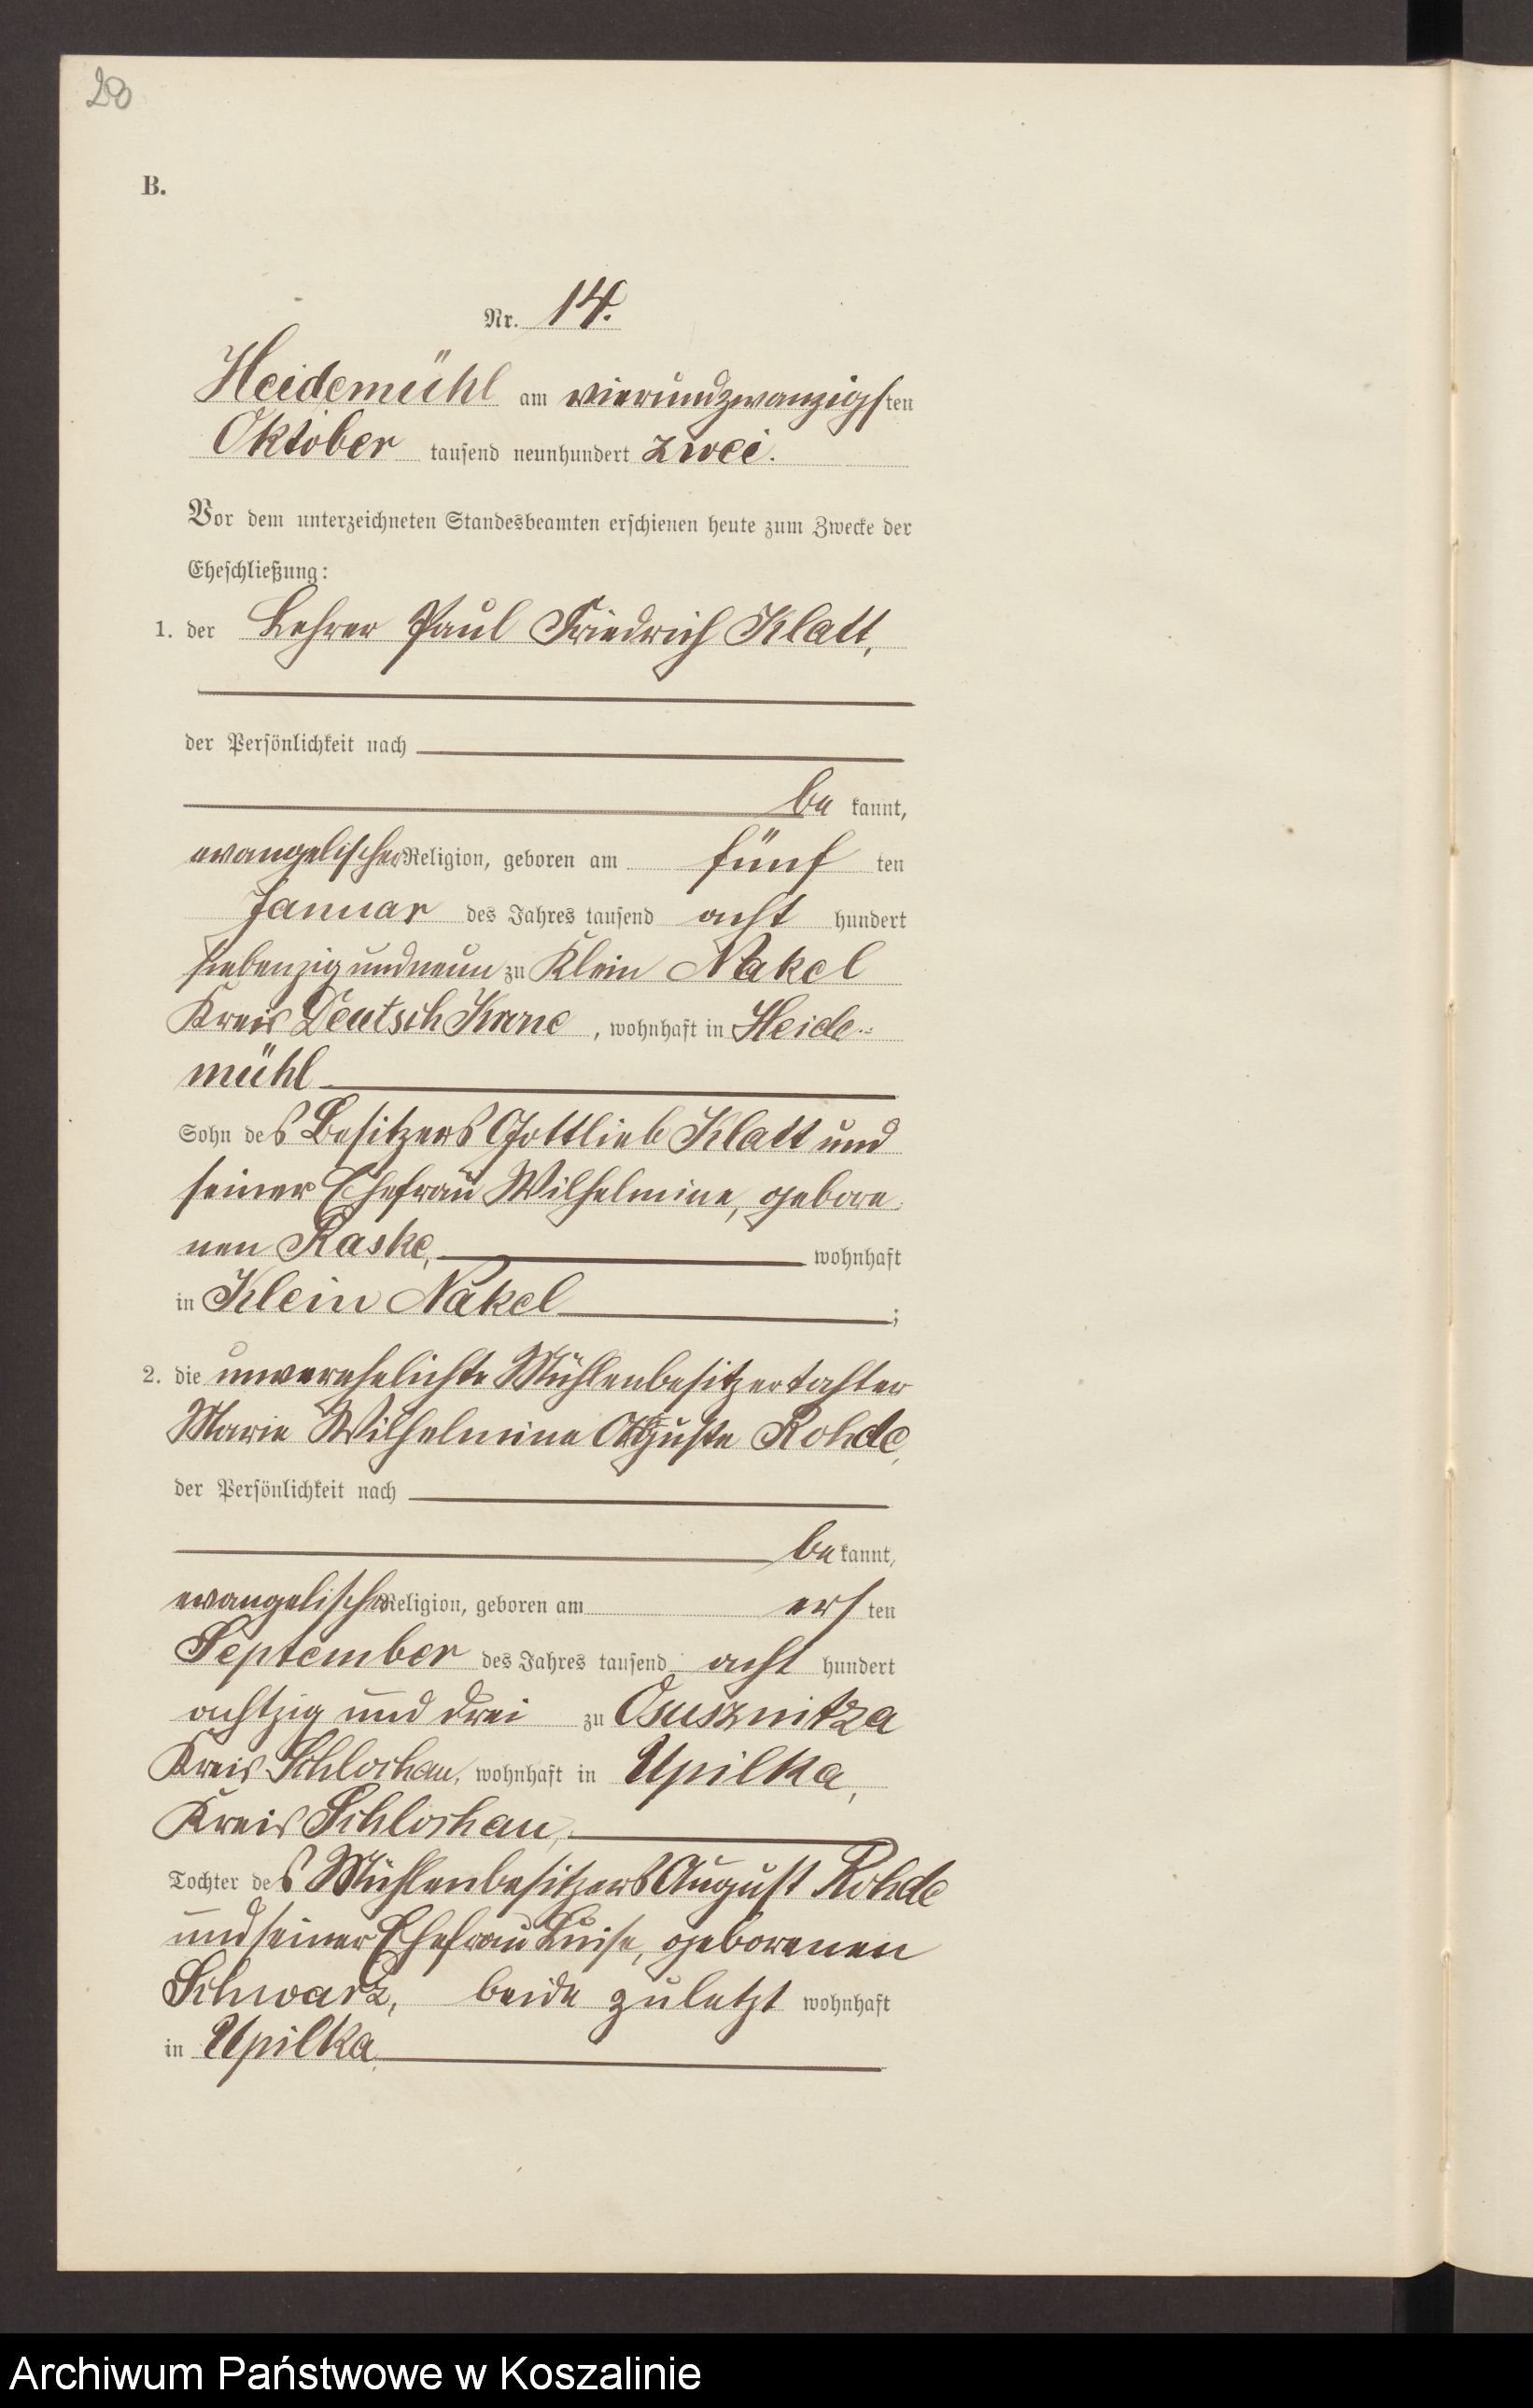 20
B.
Nr. 14.
Heidemühl am vierundzwanzigsten
Oktober tausend neunhundert zwei.
Vor dem unterzeichneten Standesbeamten erschienen heute zum Zwecke der
Eheschließung:
1. der Lehrer Paul Friedrich Klatt,
der Persönlichkeit nach
be kannt,
evangelischer Religion, geboren am fünf ten
Januar des Jahres tausend acht hundert
siebenzig und neun zu Klein Nakel
Kreis Deutsch Krone, wohnhaft in Heide-
mühl
Sohn des Besitzers Gottlieb Klatt und
seiner Ehefrau Wilhelmine, gebore-
nen Raske, wohnhaft
in Klein Nakel;
2. die unverehelichte Mühlenbesitzertochter
Marie Wilhelmine Auguste Rohde,
der Persönlichkeit nach
be kannt,
evangelischer Religion, geboren am ersten
September des Jahres tausend acht hundert
achtzig und drei zu Osusznitza
Kreis Schlochau, wohnhaft in Upilka,
Kreis Schlochau,
Tochter des Mühlenbesitzers August Rohde
und seiner Ehefrau Luise, geborenen
Schwarz, beide zuletzt wohnhaft
in Upilka.
Archiwum Państwowe w Koszalinie